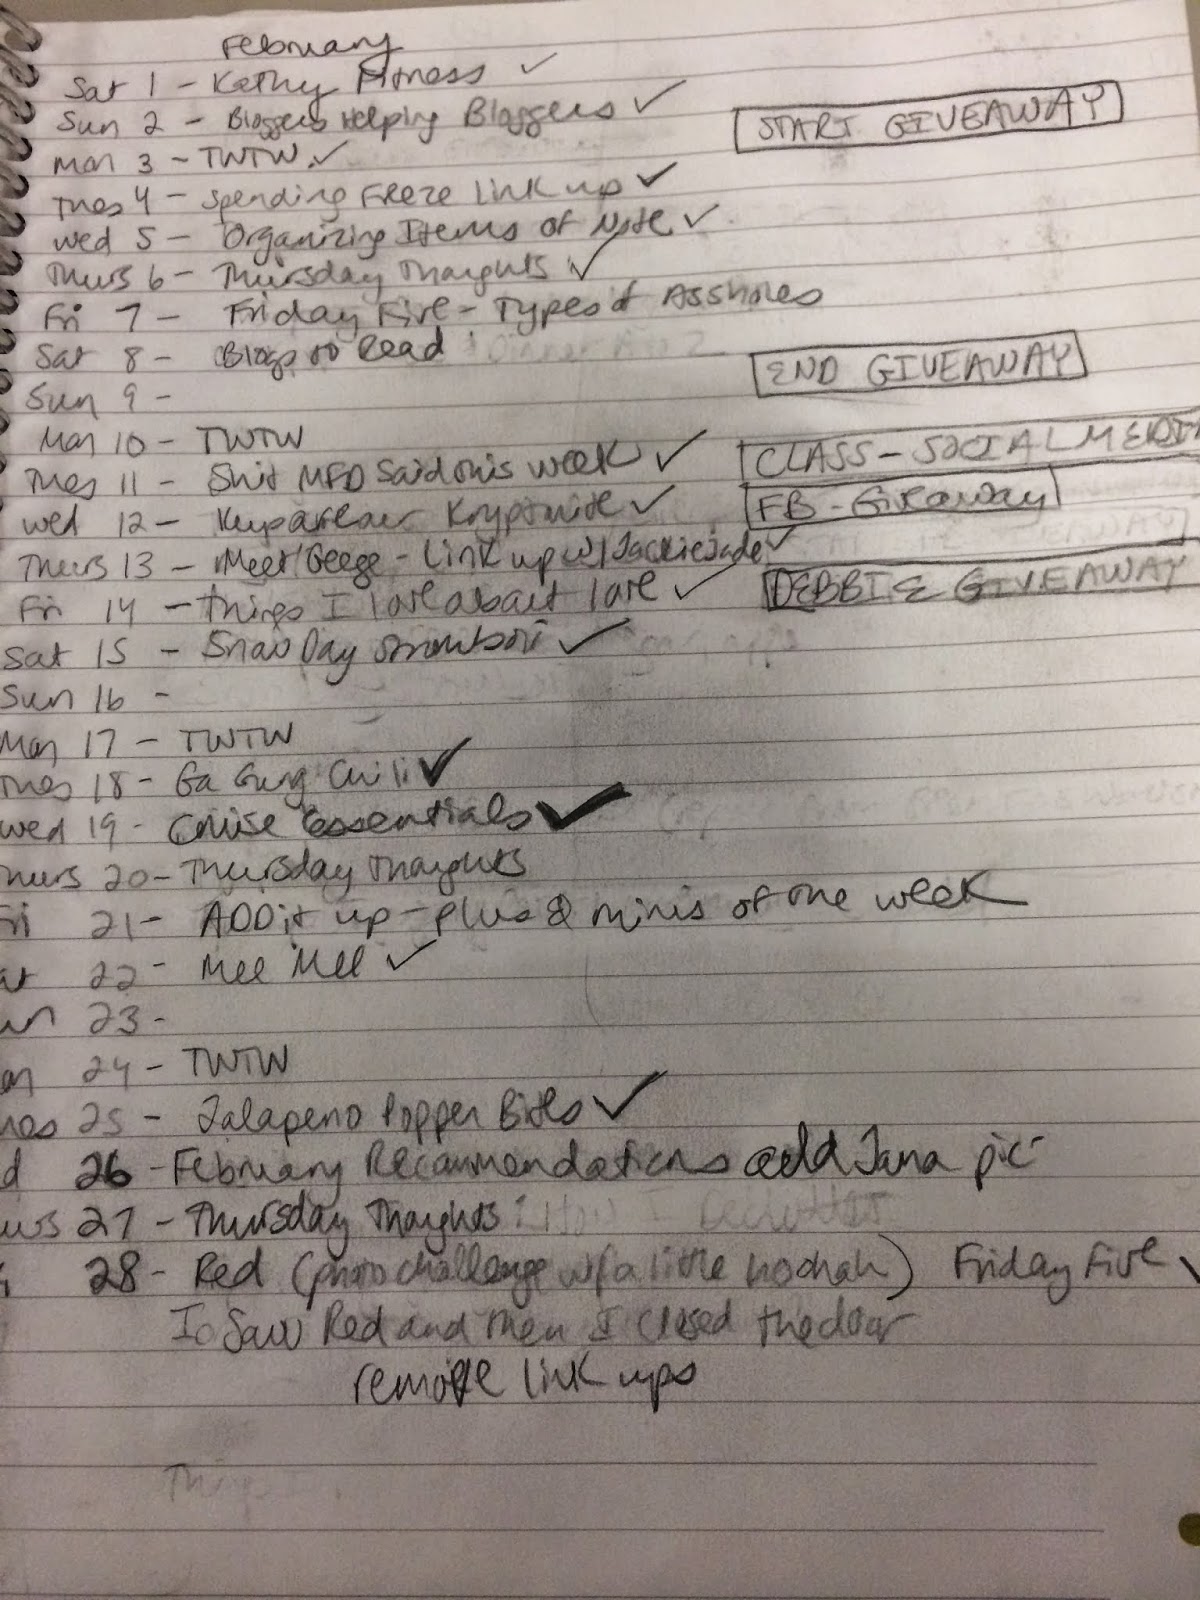 February
Sat 1 - Kathy Fitness ✓
Sun 2 - Bloggers Helping Bloggers ✓ START GIVEAWAY
Mon 3 - TWTW ✓
Tues 4 - Spending Freeze link up ✓
Wed 5 - Organizing Items of Note ✓
Thurs 6 - Thursday Thoughts ✓
Fri 7 - Friday Five - Types of Assholes
Sat 8 - Blogs to Read END GIVEAWAY
Sun 9 -
Mon 10 - TWTW CLASS - SOCIAL MEDIA
Tues 11 - Shit MFD Said this week ✓ FB - Giveaway
Wed 12 - Kryptonite ✓
Thurs 13 - Meet Geege - link up w/ Jackie Jade ✓ DEBBIE GIVEAWAY
Fri 14 - things I love about love ✓
Sat 15 - Snow Day Stromboli ✓
Sun 16 -
Mon 17 - TWTW
Tues 18 - Ga Gung Chili ✓
Wed 19 - Cruise Essentials ✓
hurs 20 - Thursday Thoughts
Fri 21 - ADD it up - plus & minis of one week
at 22 - Mee Mee ✓
un 23 -
on 24 - TWTW
ues 25 - Jalapeno Popper Bites ✓
d 26 - February Recommendations add Jana pic
urs 27 - Thursday Thoughts: How I
28 - Red (photo challenge w/ a little hoohah) Friday Five ✓
I Saw Red and then I closed the door
remove link ups
Things I